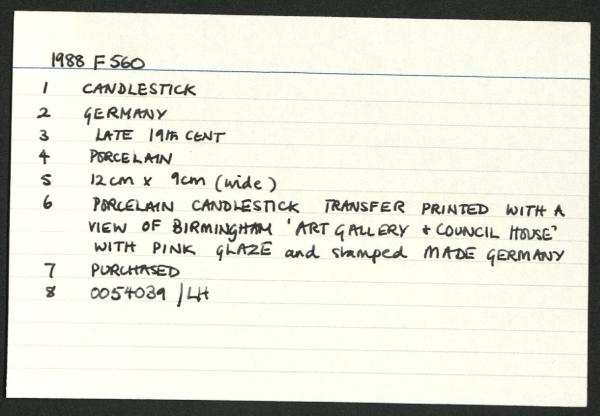 1988 F 560
1 CANDLESTICK
2 GERMANY
3 LATE 19th CENT
4 PORCELAIN
5 12cm x 9cm (wide)
6 PORCELAIN CANDLESTICK TRANSFER PRINTED WITH A
VIEW OF BIRMINGHAM 'ART GALLERY + COUNCIL HOUSE'
WITH PINK GLAZE and stamped MADE GERMANY
7 PURCHASED
8 0054039 / LH